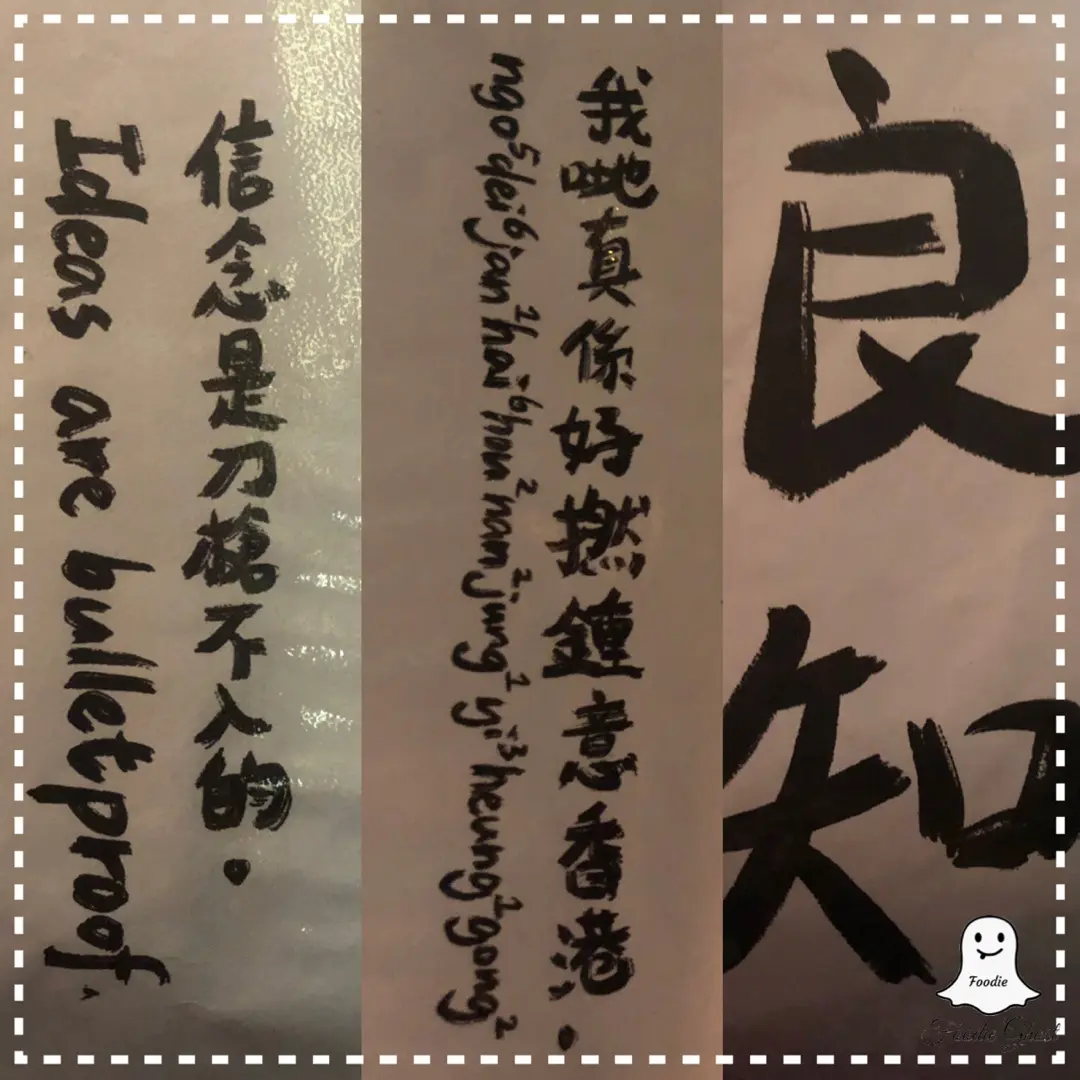 信念是刀槍不入的。
Ideas are bulletproof.
我哋真係好撚鍾意香港。
ngo⁵dei⁶jan¹hai⁶hou²nan²jung¹yi³heung¹gong²
良知
Foodie
Foodie Ghost